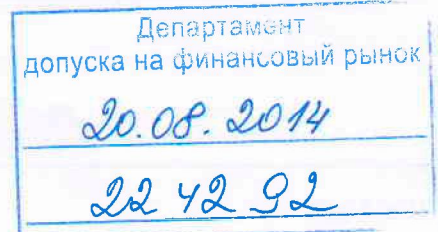 Департамент
допуска на финансовый рынок
20.08.2014
22 42 92